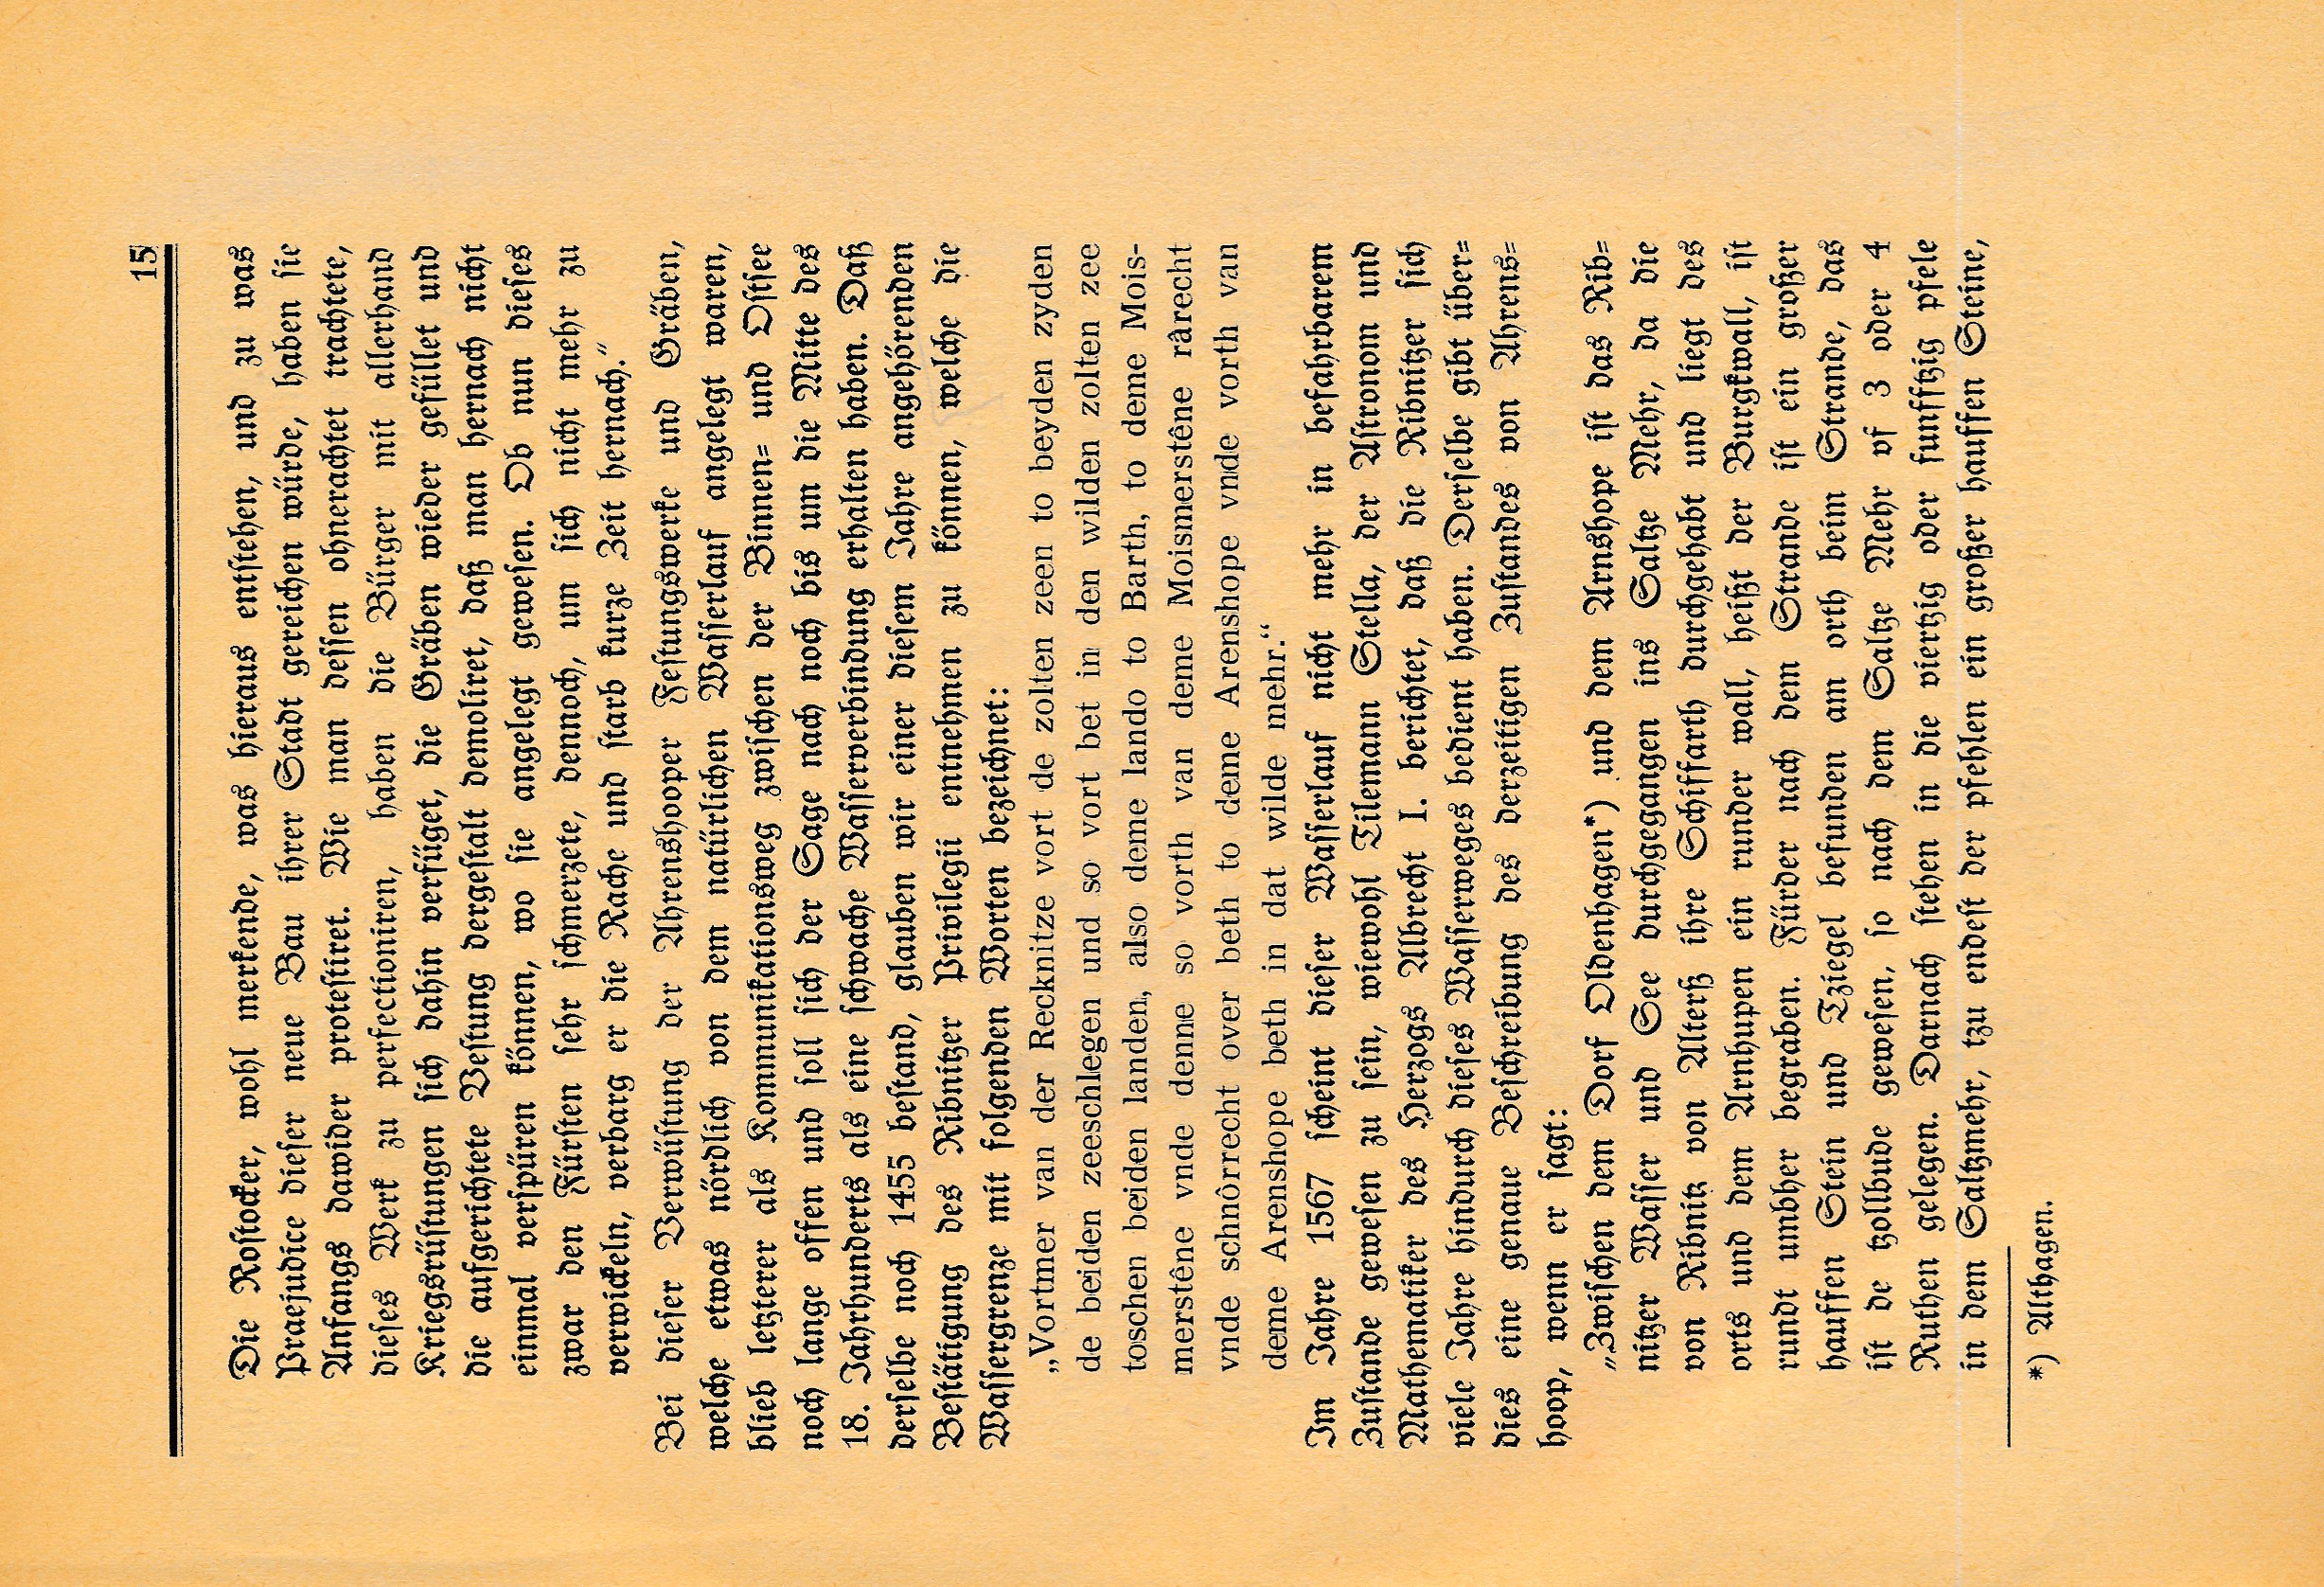 15
Die Rostocker, wohl merkende, was hieraus entstehen, und zu was
Praejudice dieser neue Bau ihrer Stadt gereichen würde, haben sie
Anfangs dawider protestiret. Wie man dessen ohnerachtet trachtete,
dieses Werk zu perfectioniren, haben die Bürger mit allerhand
Kriegsrüstungen sich dahin verfüget, die Gräben wieder gefüllet und
die aufgerichtete Vestung dergestalt demoliret, daß man hernach nicht
einmal verspüren können, wo sie angelegt gewesen. Ob nun dieses
zwar den Fürsten sehr schmerzete, dennoch, um sich nicht mehr zu
verwickeln, verbarg er die Rache und starb kurze Zeit hernach.“
Bei dieser Verwüstung der Ahrenshooper Festungswerke und Gräben,
welche etwas nördlich von dem natürlichen Wasserlauf angelegt waren,
blieb letzterer als Kommunikationsweg zwischen der Binnen- und Ostsee
noch lange offen und soll sich der Sage nach noch bis um die Mitte des
18. Jahrhunderts als eine schwache Wasserverbindung erhalten haben. Daß
derselbe noch 1455 bestand, glauben wir einer diesem Jahre angehörenden
Bestätigung des Ribnitzer Privilegii entnehmen zu können, welche die
Wassergrenze mit folgenden Worten bezeichnet:
„Vortmer van der Recknitze vort de zolten zeen to beyden zyden
de beiden zeeschlegen und so vort bet in den wilden zolten zee
toschen beiden landen, also deme lando to Barth, to deme Mois-
merstêne vnde denne so vorth van deme Moismerstêne rârecht
vnde schnôrrecht over beth to deme Arenshope vnde vorth van
deme Arenshope beth in dat wilde mehr.“
Im Jahre 1567 scheint dieser Wasserlauf nicht mehr in befahrbarem
Zustande gewesen zu sein, wiewohl Tilemann Stella, der Astronom und
Mathematiker des Herzogs Albrecht I. berichtet, daß die Ribnitzer sich
viele Jahre hindurch dieses Wasserweges bedient haben. Derselbe gibt über-
dies eine genaue Beschreibung des derzeitigen Zustandes von Ahrens-
hoop, wenn er sagt:
„Zwischen dem Dorf Oldenhagen*) und dem Arnshope ist das Rib-
nitzer Wasser und See durchgegangen ins Saltze Mehr, da die
von Ribnitz von Alterß ihre Schiffarth durchgehabt und liegt des
orts und dem Arnhupen ein runder wall, heißt der Burgkwall, ist
rundt umbher begraben. Fürder nach dem Strande ist ein großer
hauffen Stein und Tziegel befunden am orth beim Strande, das
ist de tzollbude gewesen, so nach dem Saltze Mehr vf 3 oder 4
Ruthen gelegen. Darnach stehen in die viertzig oder funfftzig pfele
in dem Saltzmehr, tzu endest der pfehlen ein großer hauffen Steine,
*) Althagen.